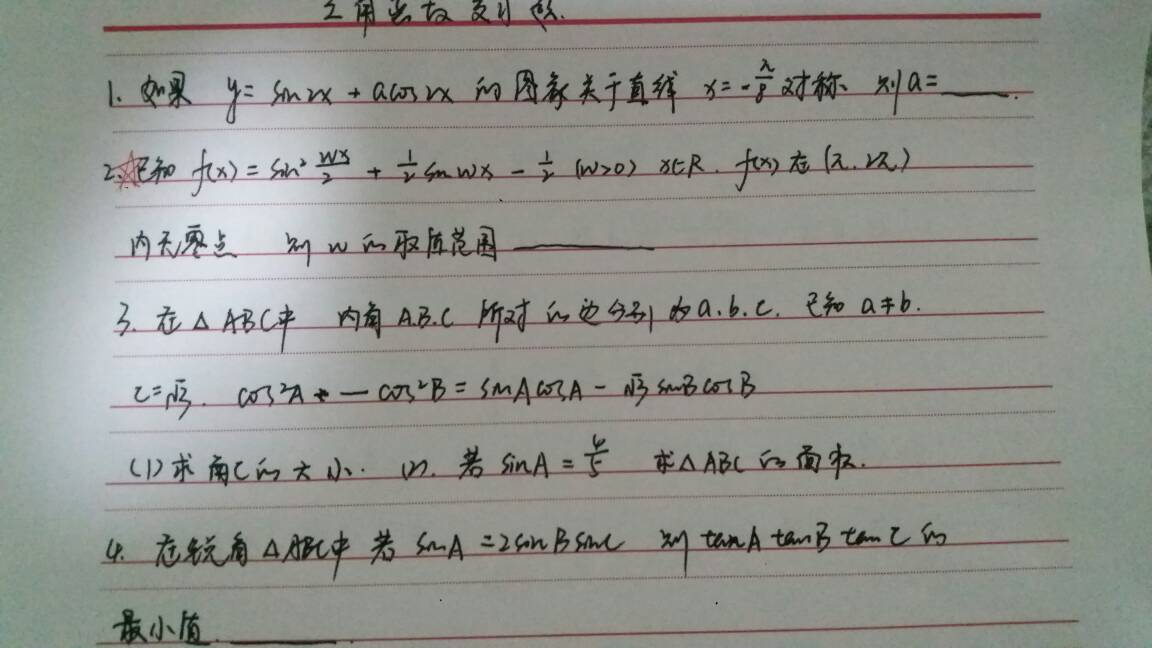 三角函数复习题.
1. 如果 y = sin2x + acos2x 的图象关于直线 x = -π/8 对称、则 a = ____.
2. 已知 f(x) = sin² wx/2 + 1/2 sin wx - 1/2 (w>0) x∈R. f(x) 在 (π. 2π)
内无零点 则 w 的取值范围 ______
3. 在 △ABC中 内角 A.B.C 所对的边分别为 a.b.c. 已知 a≠b.
c=√3. cos²A - cos²B = sinAcosA - √3 sinBcosB
(1) 求角C的大小. (2). 若 sinA = 4/5 求△ABC的面积.
4. 在锐角△ABC中 若 sinA = 2sinBsinC 则 tanA tanB tanC 的
最小值 ______.